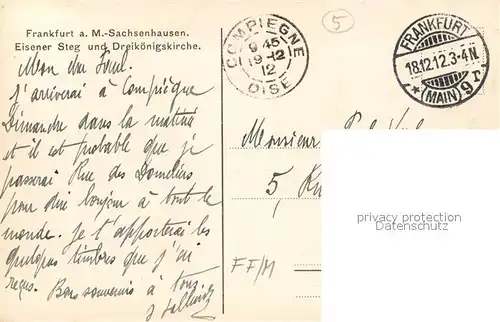 Frankfurt a. M.-Sachsenhausen.
Eisener Steg und Dreikönigskirche.
Mon cher
J'arriverai à Compiègne
Dimanche dans la matinée
et il est probable que je
passerai Rue des Domeliers
pour dire bonjour à tout le
monde. Je t'apporterai les
quelques timbres que j'ai
reçus. Bons souvenirs à tous
COMPIEGNE
9 45
19-12
12
OISE
5
FRANKFURT
18.12.12.3-4N.
* (MAIN) 9 r
Monsieur
5, Rue
FF/M
privacy protection
watermark